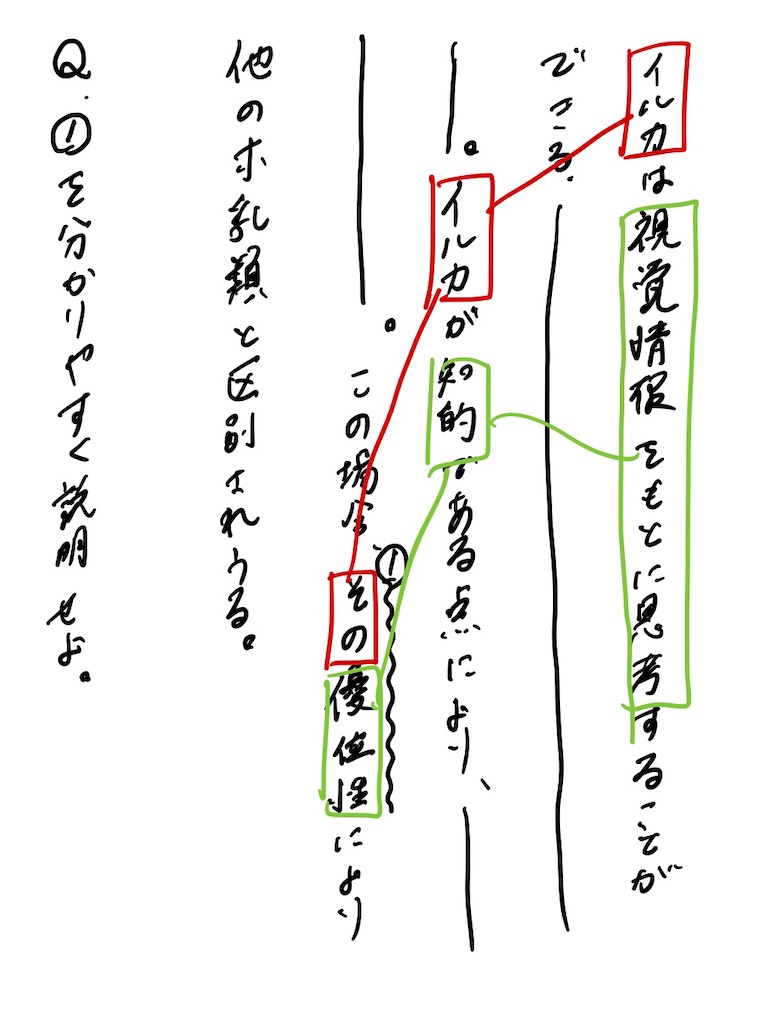 イルカは視覚情報をもとに思考することが
できる。
。イルカが知的である点により、
。この場合①その優位性により
他のホ乳類と区別されうる。
Q.①を分かりやすく説明せよ。